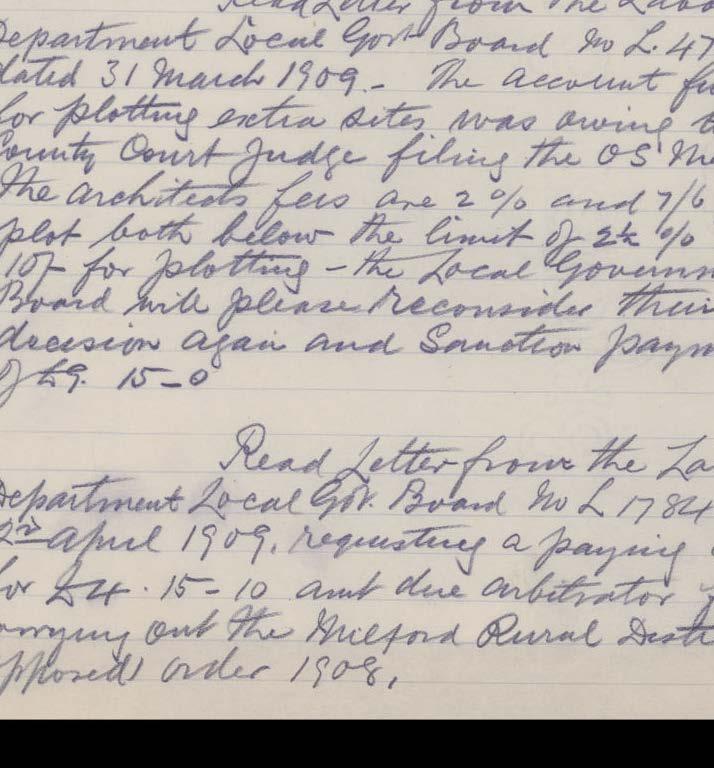 Read Letter from the Labo
Department Local Govt Board No L. 47
dated 31 March 1909.- The account fu
for plotting extra sites was owing t
County Court Judge filing the OS Me
The architects fees are 2 % and 7/6
plot both below the limit of 2½ %
10/- for plotting - the Local Governm
Board will please reconsider their
decision again and Sanction paym
of £9. 15-0
Read Letter from the La
Department Local Gov. Board No L 1784
2nd April 1909, requesting a paying
for £4. 15-10 amt due arbitrator
arrying out the Milford Rural Distr
pposed) order 1908,